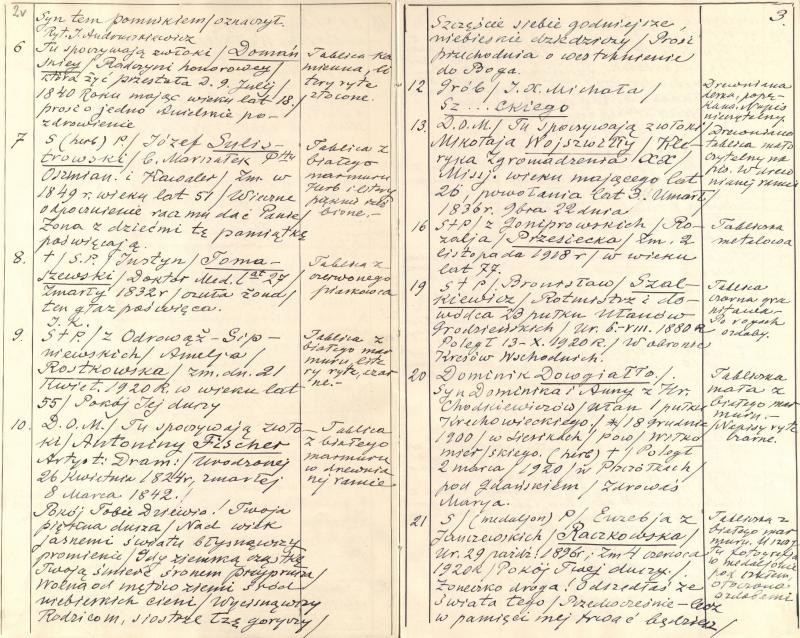 2v
Syn tem pomnikiem / oznaczył.
Ryt. J. Andruszkiewicz
6 Tu spoczywają zwłoki / Doman
skiey / Radczyni honorowey /
która żyć przestała D. 9. Julij /
1840 Roku mając wieku lat 18 /
prosi o jedno Anielskie po-
zdrowienie
Tablica ka
mienna, li
tery ryte
złocone.
7 S (herb) P / Józef Sulis-
trowski / b. Marszałek Pttu
Oszmian. i Kawaler / Zm. w
1849 r. wieku lat 51 / Wieczne
odpocznienie racz mu dać Panie /
Żona z dziećmi tę pamiątkę
poświęcają.
Tablica z
białego
marmuru
Herb i litery
pięknie rzeź
bione.-
8. + / S.P. / Justyn / Toma-
szewski / Doktór Med. lat 27 /
Zmarły 1832 r / czuła żona /
ten głaz poświęca.
J. K.
Tablica z
czerwonego
piaskowca
9. S + P / z Odrowąż - Sip-
niewskich / Amelja /
Rostkowska / zm. dn. 21
Kwiet. 1920 R. w wieku lat
55 / Pokój Jej duszy
Tablica z
białego mar
muru, lite
ry ryte, czar
ne.-
10. D.O.M. / Tu spoczywają zwło-
ki / Antoniny Fischer
Artyst: Dram: / Urodzonej
26 Kwietnia 1824 r, zmarłej
8 Marca 1842. /
Pokój Tobie Dziewio! / Twoja
piękna dusza / Nad wiek
jasnemi światu błysnąwszy
promienie / Gdy ziemską cząstkę
Twoją śmierć szronem przyprusza /
Wolna od mętów ziemi śród
niebieskich cieni / Wycisnąwszy
Rodzicom, siostrze łzę goryczy /
Tablica
z białego
marmuru
w drewnia
nej ramie
3.
Szczęście siebie godniejsze,
niebieskie dziedziczy / Prosi
przechodnia o westchnienie
do Boga.
12 Grób / J. X. Michała /
Sz ... ckiego
Drewniana
deska, popę-
kana. Napis
nieczytelny
13. D.O.M / Tu spoczywają zwłoki
Mikołaja Wojszwiłły / Kle-
ryka Zgromadzenia XX /
Missj. wieku mającego lat
26, powołania lat 3. Umarł /
1836 r. 9bra 22 dnia
Drewniana
tablica mało
czytelny na
pis. W drew
nianej ramie
16 S + P / z Goniprowskich / Ro-
zalja / Przesiecka / Zm. 2
listopada 1918 r / w wieku
lat 77.
Tabliczka
metalowa
19 S + P / Bronisław / Szal-
kiewicz / Rotmistrz i do-
wódca 23 pułku Ułanów
Grodzieńskich / Ur. 6-VIII. 1880 R
Poległ 13-X. 1920 R. / W obronie
Kresów Wschodnich.
Tablica
czarna gra
nitowa.-
Po rogach
ozdoby.
20 Dominik Dowgiałło. /
Syn Dominika i Anny z Hr.
Chodkiewiczów / Ułan 1 pułku
Krechowieckiego. / * / 18 grudnia
1900 / w Siesikach / pow / Wiłko
mierskiego. (herb) + / Poległ
2 marca / 1920 / w Płoczkach /
pod Gdańskiem / Zdrowaś
Marya.
Tabliczka
mała z
białego mar
muru.-
Napisy ryte
czarne.
21 S / (medaljon) P / Euzebja z
Janczewskich / Raczkowska /
Ur. 29 paźdź. 1896 r; Zm 4 czerwca
1920 R / Pokój Twej duszy. /
Żoneczko droga! Odszedłaś ze
świata tego / Przedwcześnie - lecz
w pamięci mej trwać będziesz /
Tabliczka z
białego mar
muru. U szczy
tu fotografja
w medaljonie
pod szkłem,
otoczona
ozdobami